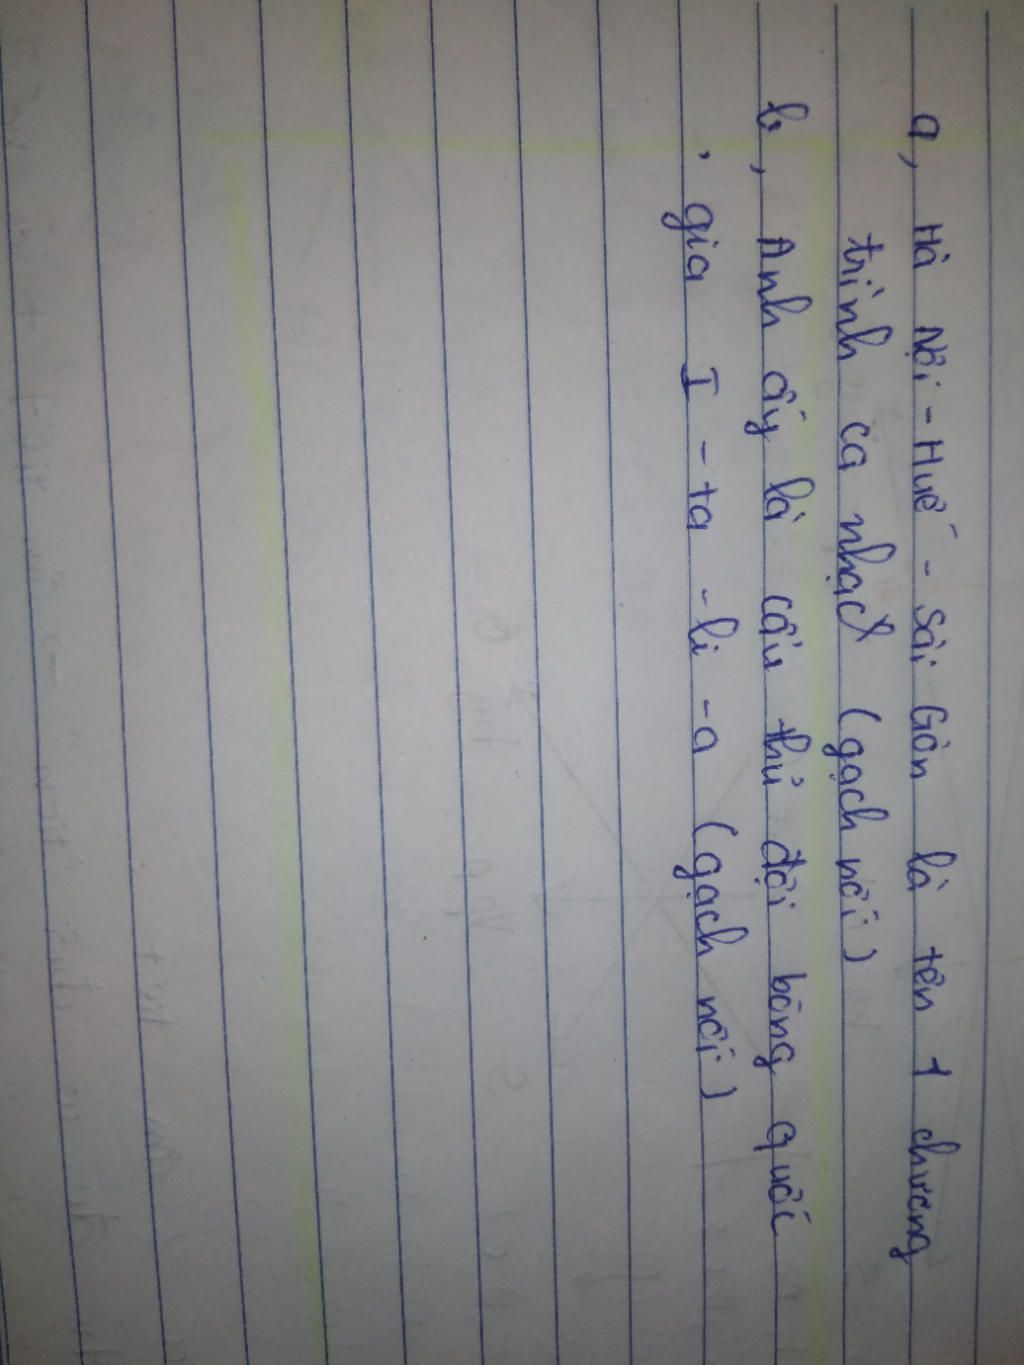 a, Hà Nội - Huế - Sài Gòn là tên 1 chương
trình ca nhạc (gạch nối)
b, Anh ấy là cầu thủ đội bóng quốc
gia I - ta - li - a (gạch nối)